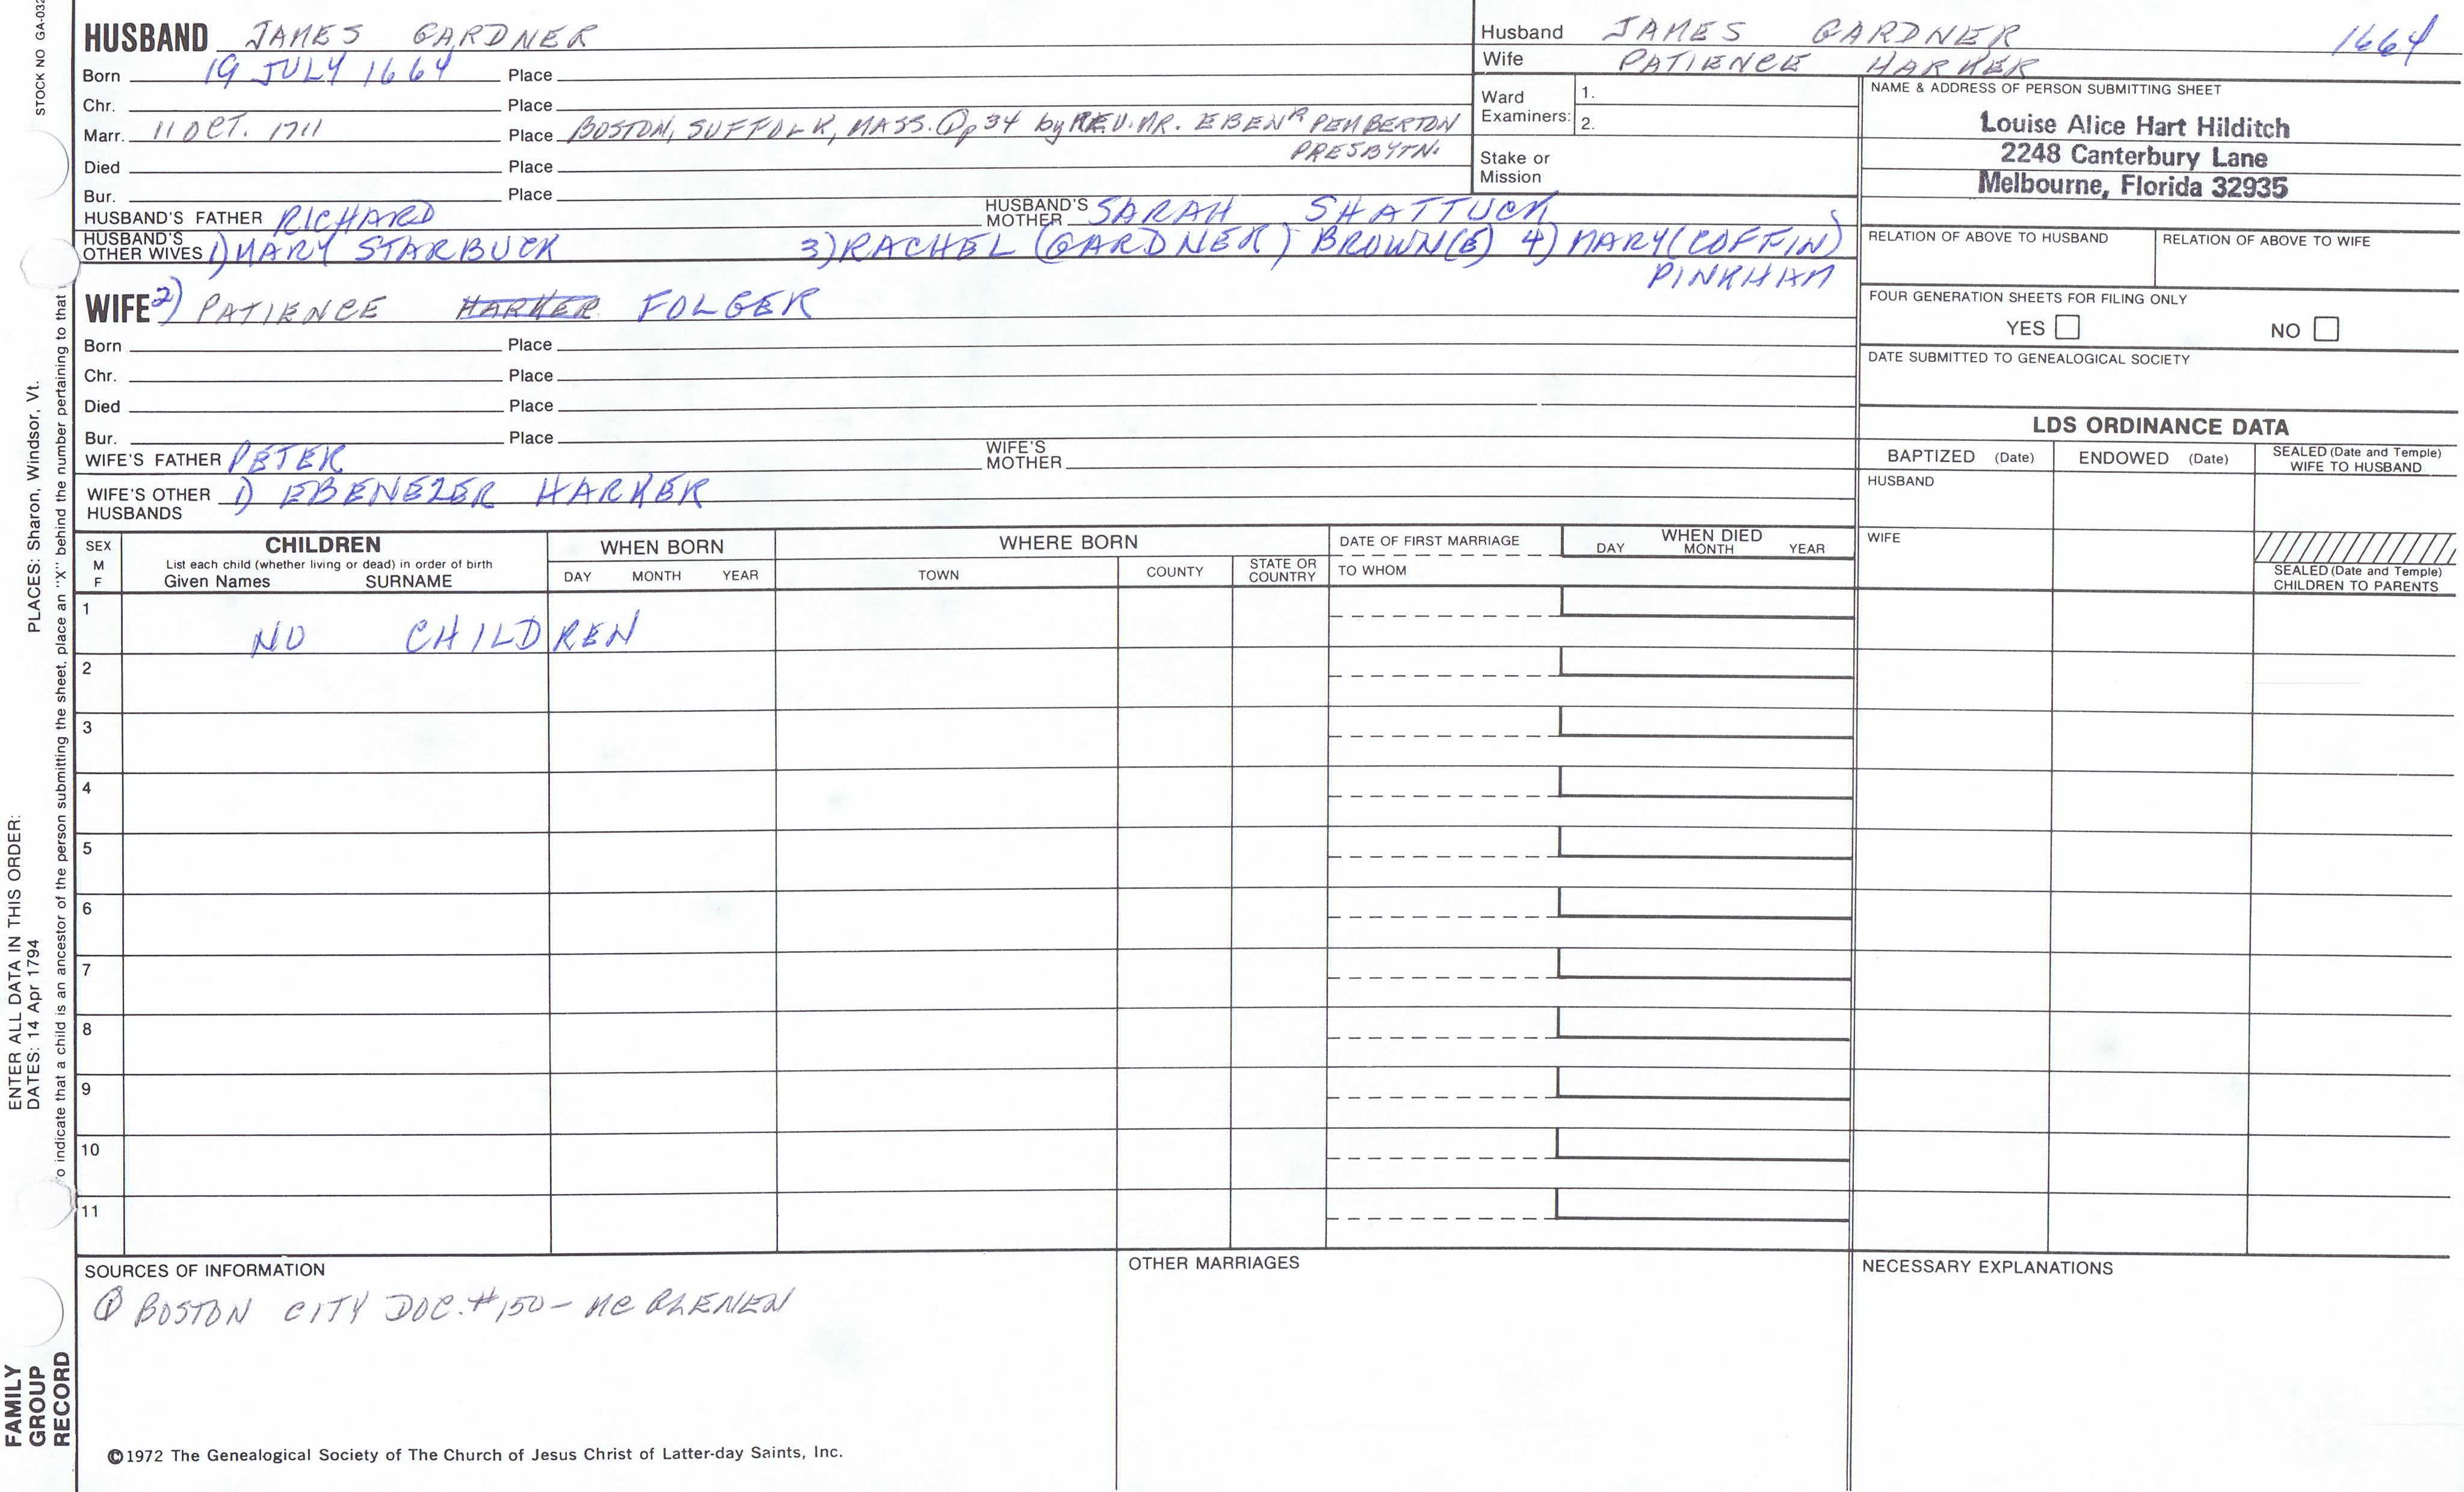 STOCK NO GA-032
PLACES: Sharon, Windsor, Vt.
ENTER ALL DATA IN THIS ORDER:
DATES: 14 Apr 1794
To indicate that a child is an ancestor of the person submitting the sheet, place an "X" behind the number pertaining to that
FAMILY
GROUP
RECORD
HUSBAND JAMES GARDNER
Born 19 JULY 1664 Place
Chr. Place
Marr. 11 OCT. 1711 Place BOSTON, SUFFOLK, MASS. ① p 34 by REV. MR. EBENR PEMBERTON
PRESBYTN.
Died Place
Bur. Place
HUSBAND'S FATHER RICHARD HUSBAND'S MOTHER SARAH SHATTUCK
HUSBAND'S OTHER WIVES 1) MARY STARBUCK 3) RACHEL (GARDNER) BROWN(E) 4) MARY (COFFIN)
PINKHAM
WIFE 2) PATIENCE HARKER FOLGER
Born Place
Chr. Place
Died Place
Bur. Place
WIFE'S FATHER PETER WIFE'S MOTHER
WIFE'S OTHER HUSBANDS 1) EBENEZER HARKER
Husband JAMES GARDNER 1664
Wife PATIENCE HARKER
Ward Examiners: 1.
2.
Stake or Mission
NAME & ADDRESS OF PERSON SUBMITTING SHEET
Louise Alice Hart Hilditch
2248 Canterbury Lane
Melbourne, Florida 32935
RELATION OF ABOVE TO HUSBAND RELATION OF ABOVE TO WIFE
FOUR GENERATION SHEETS FOR FILING ONLY
YES NO
DATE SUBMITTED TO GENEALOGICAL SOCIETY
LDS ORDINANCE DATA
BAPTIZED (Date) ENDOWED (Date) SEALED (Date and Temple) WIFE TO HUSBAND
HUSBAND
WIFE
SEALED (Date and Temple)
CHILDREN TO PARENTS
SEX M F CHILDREN
List each child (whether living or dead) in order of birth
Given Names SURNAME
WHEN BORN
DAY MONTH YEAR
WHERE BORN
TOWN COUNTY STATE OR COUNTRY
DATE OF FIRST MARRIAGE
TO WHOM
WHEN DIED
DAY MONTH YEAR
1 NO CHILDREN
2
3
4
5
6
7
8
9
10
11
SOURCES OF INFORMATION
① BOSTON CITY DOC. #150 -
OTHER MARRIAGES
NECESSARY EXPLANATIONS
©1972 The Genealogical Society of The Church of Jesus Christ of Latter-day Saints, Inc.